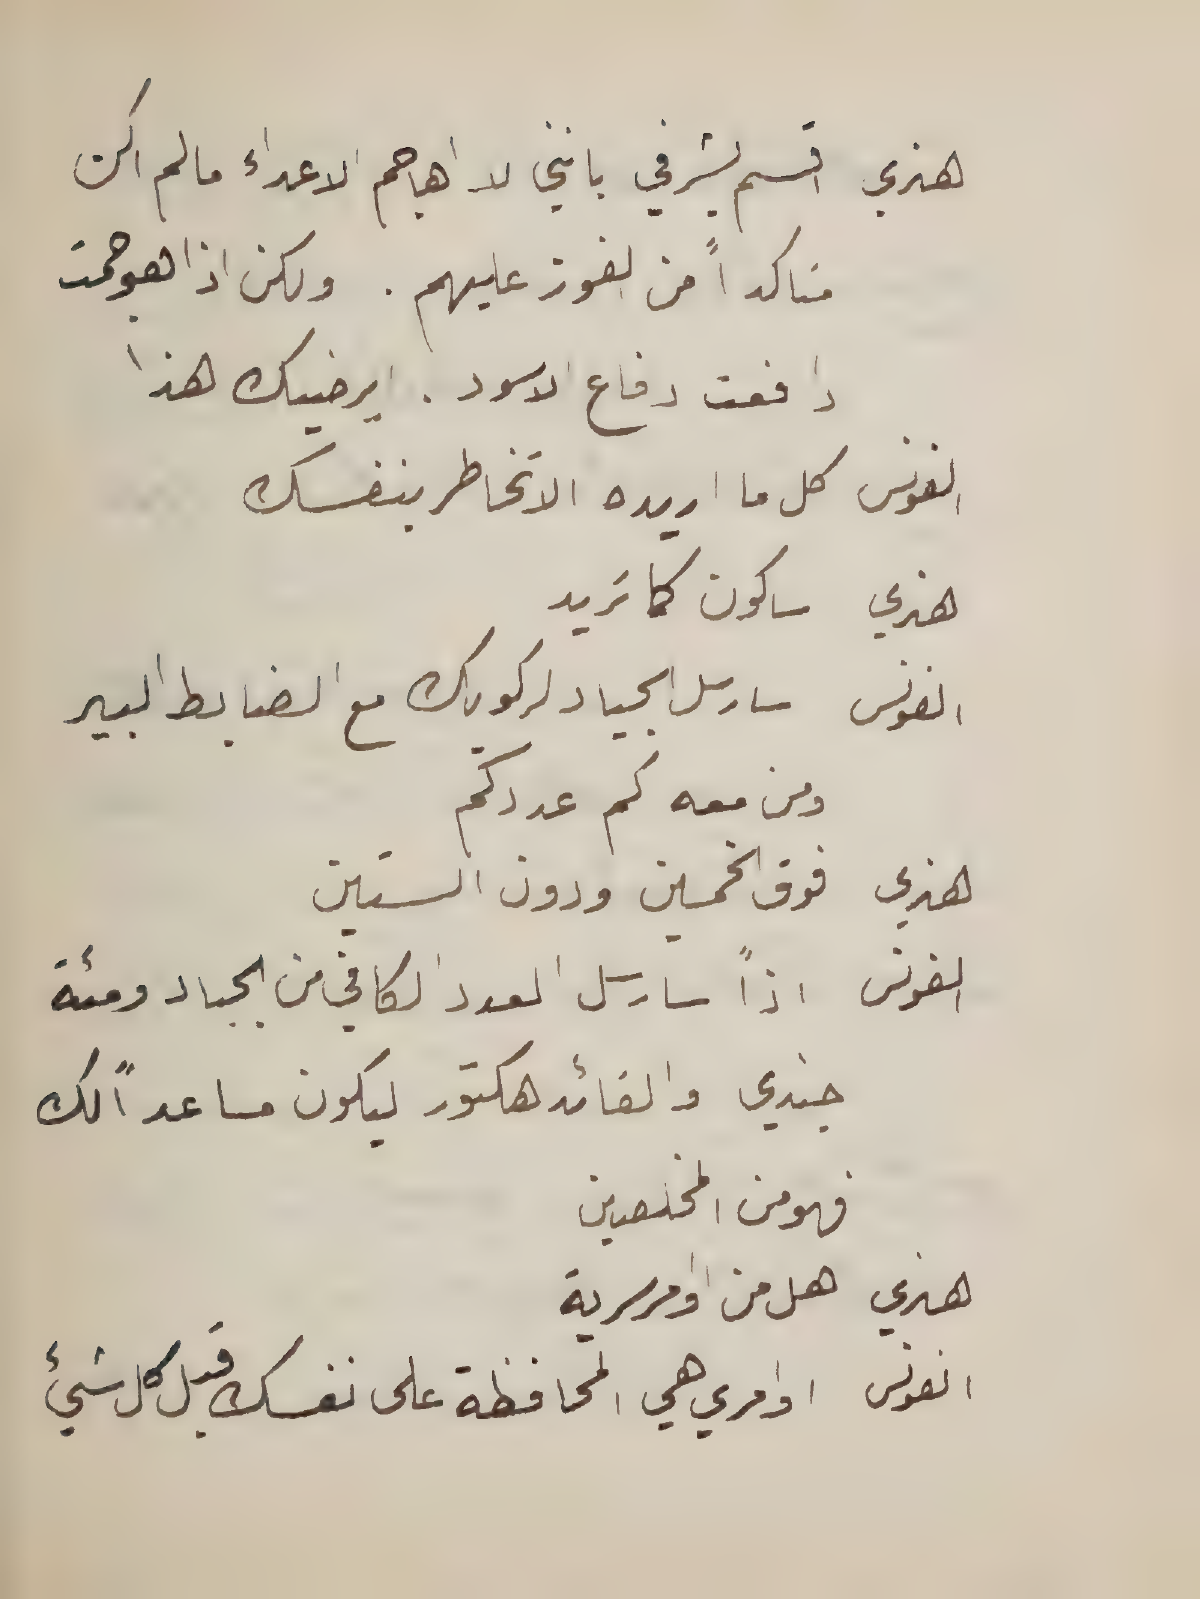 هنري اقسم بشرفي بانني لا اهاجم الاعداء مالم اكن
متاكداً من الفوز عليهم . ولكن اذا هوجمت
دافعت دفاع الاسود . ايرضيك هذا
الفونس كل ما اريده الا تخاطر بنفسك
هنري ساكون كما تريد
الفونس سارسل الجياد لركوبك مع الضابط البير
ومن معه كم عددكم
هنري فوق الخمسين ودون الستين
الفونس اذاً سارسل العدد الكافي من الجياد ومئة
جندي والقائد هكتور ليكون مساعداً لك
فهو من المخلصين
هنري هل من اوامر سرية
الفونس اوامري هي المحافظة على نفسك قبل كل شيئ